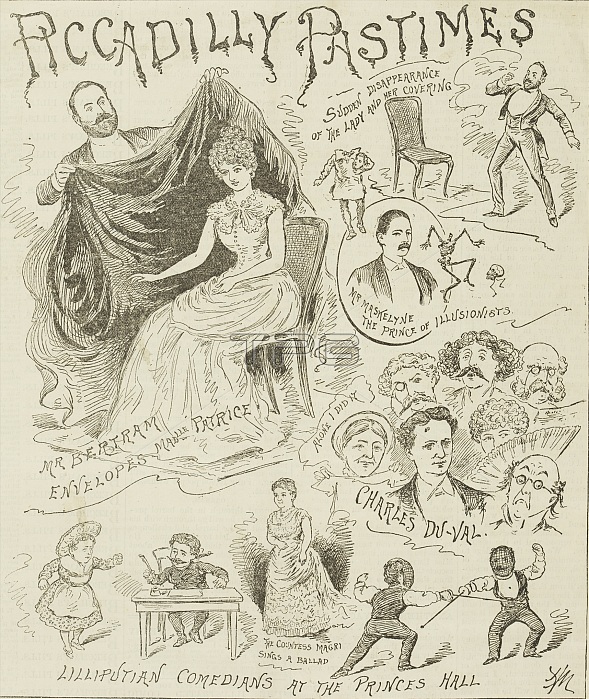 PICCADILLY PASTIMES
SUDDEN DISAPPEARANCE
OF THE LADY AND HER COVERING
MR MASKELYNE
THE PRINCE OF ILLUSIONISTS.
TPG
MR BERTRAM
ENVELOPES MADLLE PATRICE.
ALONE I DID IT
CHARLES DU-VAL.
THE COUNTESS MAGRI
SINGS A BALLAD
LILLIPUTIAN COMEDIANS AT THE PRINCES HALL